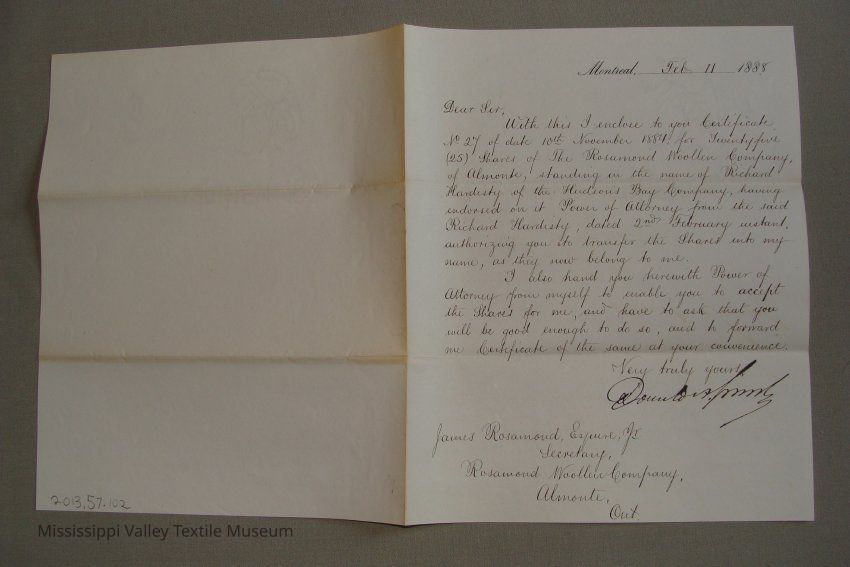 Montreal, Feb 11 1888
Dear Sir,
With this I enclose to you Certificate
No 27 of date 10th November 1881, for Twentyfive
(25) Shares of The Rosamond Woollen Company,
of Almonte, standing in the name of Richard
Hardisty of the Hudsons Bay Company, having
endorsed on it Power of Attorney from the said
Richard Hardisty, dated 2nd February instant,
authorizing you to transfer the Shares into my
name, as they now belong to me.
I also hand you herewith Power of
Attorney from myself to enable you to accept
the Shares for me, and have to ask that you
will be good enough to do so, and to forward
me Certificate of the same at your convenience.
Very truly yours,
James Rosamond, Esquire, Jr
Secretary,
Rosamond Woollen Company,
Almonte,
Ont
2013.57.102
Mississippi Valley Textile Museum